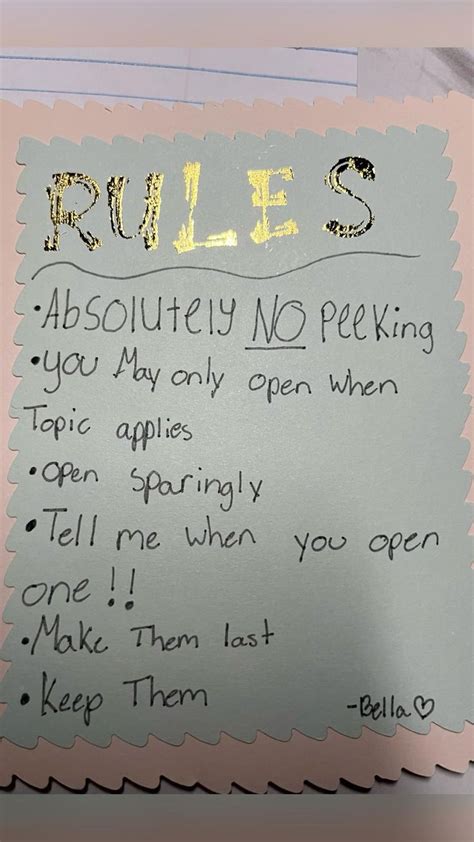 RULES
•Absolutely NO Peeking
•you May only open when
Topic applies
•open sparingly
•Tell me when you open
one!!
•Make Them last
•Keep Them
-Bella♡